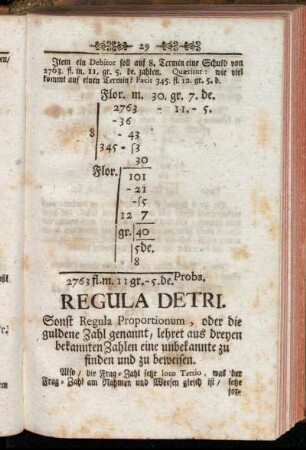 29
Item ein Debitor soll auf 8. Termin eine Schuld von
2763. fl. m. 11. gr. 5. de. zahlen. Quæritur: wie viel
kommt auf einen Termin/ Facit 345. fl. 12. gr. 5. d.
Flor. m. 30. gr. 7. de.
2763 - 11. - 5.
-36
8 - 43
345 - 53
30
Flor. 101
- 21
-55
12 7
gr. 40
5de.
8
2763 fl. m. 11 gr. - 5. de. Proba.
REGULA DETRI.
Sonst Regula Proportionum, oder die
guldene Zahl genannt, lehret aus dreyen
bekannten Zahlen eine unbekannte zu
finden und zu beweisen.
Also/ die Frag-Zahl setze loco Tertio, was der
Frag-Zahl am Nahmen und Weesen gleich ist/ setze